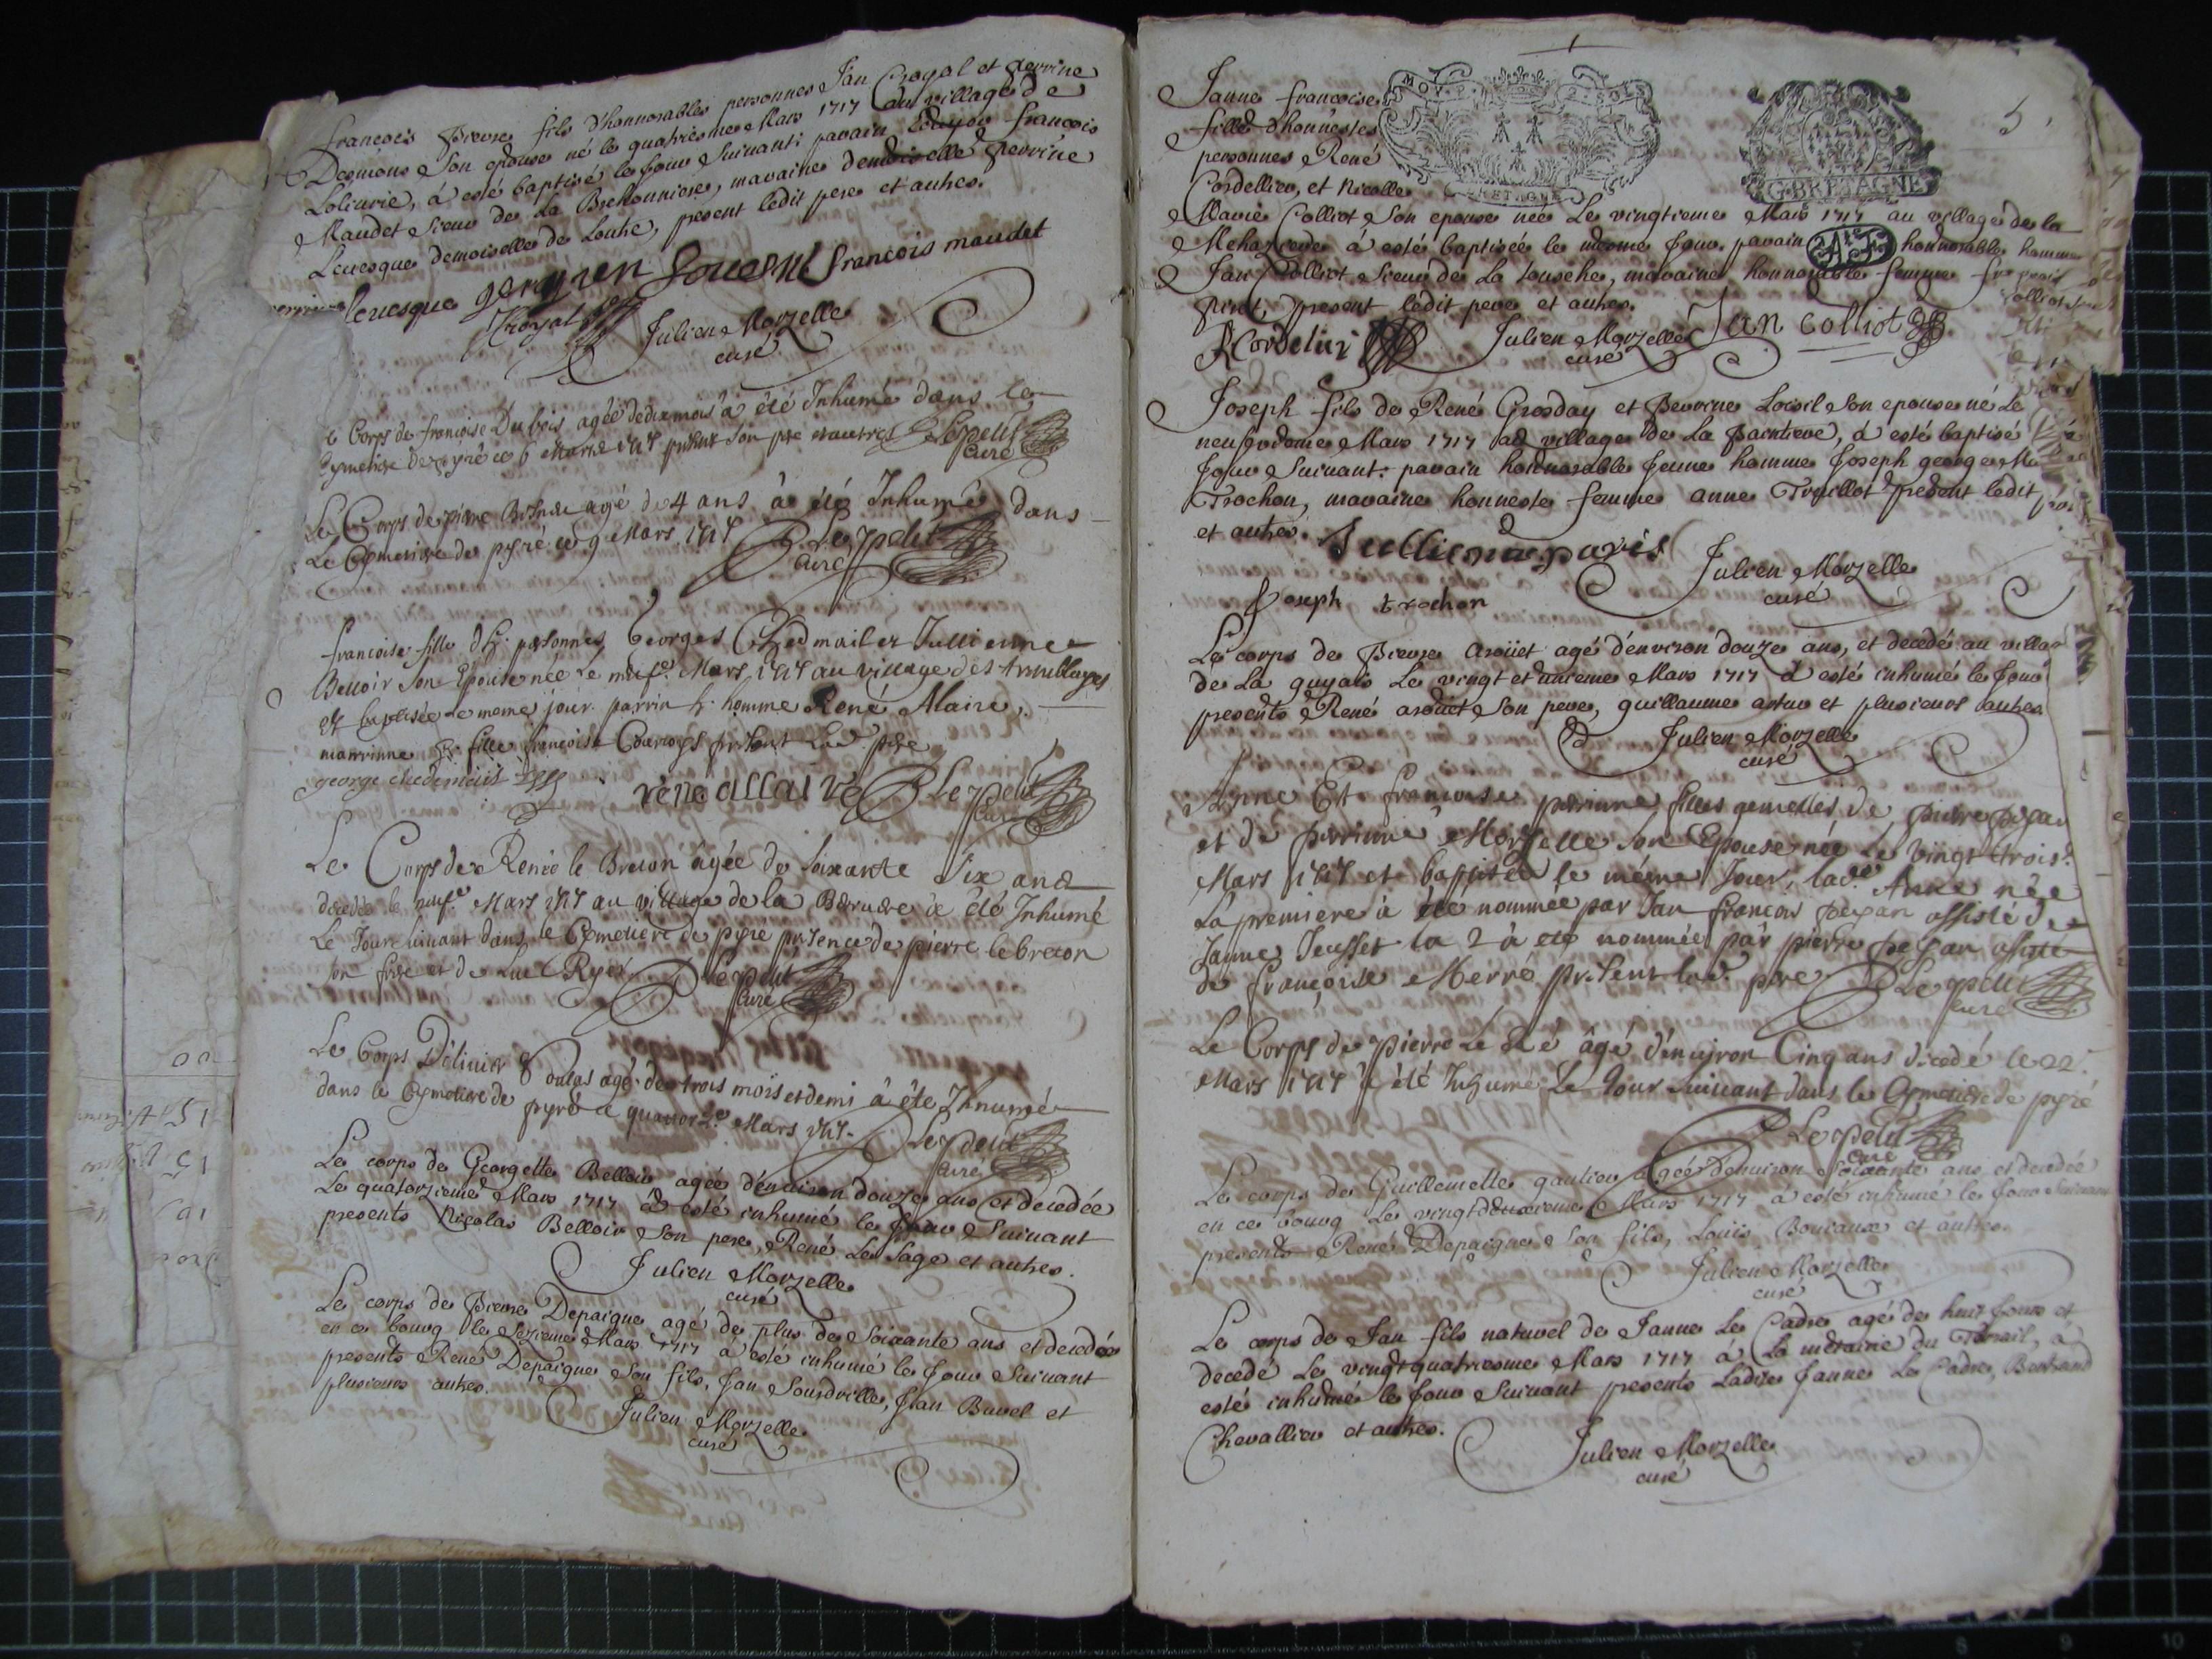 francois Pierre fils d'honnorables personnes Jan Croyal et Perrine
Desmons Son epouse né le quatriesme Mars 1717 au village de
Loliurie, à esté baptisé le jour Suiuant: parain Ecuyer francois
Maudet Sieur de La Bretonniere, maraine demoiselle Perrine
Leuesque demoiselle de Louche, present ledit pere et autres.
perrine leuesque francois maudet
Croyal Julien Morzelle
curé
Le Corps de françoise Dubois agée de dix mois a été Inhumé dans le
Cymetiere de pyré ce 6 Mars 1717 present Son pre et autres Le petit
curé
Le Corps de pierre agé de 4 ans à été Inhumé dans
Le Cymetiere de pyré ce 9 Mars 1717 Le petit
curé
francoise fille d'h. personnes Georges Chedmail et Jullienne
Belloir Son Epouse née Le neufe. Mars 1717 au village des
et baptisée le meme jour. parrin h. homme René Alaire,
marrinne h. fille francoise Courtoys present Led. pre
george chedemail
réne allaire Le petit
curé
Le Corps de Renée le Breton âgée de Soixante Six ans
decedée le neufe Mars 1717 au village de la à été Inhumé
Le Jour Suiuant dans le Cymetiere de pyré presence de pierre le breton
son frere et de Luc Le petit
curé
Le Corps D'oliuier agé de trois mois et demi à été Inhumé
dans le Cymetiere de pyré ce quatorze. Mars 1717. Le petit
curé
Le corps de Georgette Belloir agée d'enuiron douze ans et decedée
Le quatorzieme Mars 1717 à esté inhumé le jour Suiuant
presents Nicolas Belloir Son pere, René Le Sage et autres.
Julien Morzelle
curé
Le corps de Pierre Depaigne agé de plus de Soixante ans et decedé
en ce bourg le Sezieme Mars 1717 à esté inhumé le jour Suiuant
presents René Depaigne Son fils, Jan Sourdrille, Jan Buuel et
plusieurs autres.
Julien Morzelle
curé
5
MOY. P. 2 SOLS
BRETAGNE
G. BRETAGNE
Janne francoise
fille d'honnestes
personnes René
Cordellier, et Nicolle
Marie Colliot Son epouse née Le vingtieme Mars 1717 au village de la
à esté baptisée le mesme jour. parain honnorable homme
Jan Colliot Sieur de La Tousche, maraine honnorable femme
present ledit pere et autres.
R Cordelier Julien Morzelle Jan colliot
curé
Joseph fils de René Grosday et Perrine Loisil Son epouse né Le
neufuiesme Mars 1717 au village de La , à esté baptisé
jour Suiuant: parain honnorable jeune homme Joseph george
Trochon, maraine honneste femme anne Trouillot present ledit
et autres.
Julien Morzelle
Joseph trochon curé
Le corps de Pierre Aroüet agé d'enuiron douze ans, et decedé au
de La guyais Le vingt et unieme Mars 1717 à esté inhumé le jour
presents René aroüet Son pere, guillaume artur et plusieurs autres
Julien Morzelle
curé
Anne Et francoise perrinne filles gemelles de pierre
et de perrinne Morzelle Son Epouse née Le vingt trois.
Mars 1717 et baptisée le méme Jour, lad.e Anne née
La premiere à été nommée par Jan francois assisté de
Janne Jeusset la 2 à été nommée par pierre assisté
de francoise Merré present led. pre Le petit
curé
Le Corps de pierre Le Ré âgé d'enuiron Cinq ans decedé le 22.
Mars 1717 à été Inhumé Le Jour Suiuant dans le Cymetiere de pyré
Le petit
curé
Le corps de Guillemette gautier agée d'enuiron Soixante ans et decedée
en ce bourg Le vingtdeuxieme Mars 1717 à esté inhumé le jour Suiuant
presents René Depaigne Son fils, Louis et autres.
Julien Morzelle
curé
Le corps de Jan fils naturel de Janne Le Cadre agé de huit jours et
decedé Le vingtquatriesme Mars 1717 à La métairie du , à
esté inhumé le jour Suiuant presents Ladite Janne Le Cadre, Bertrand
Chevallier et autres.
Julien Morzelle
curé